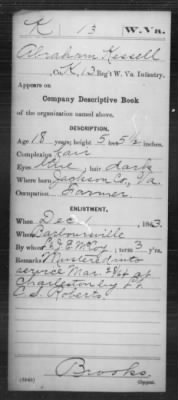 K 13 W. Va.
Abraham Kessell
, Co. K, 13 Reg't W. Va. Infantry.
Appears on
Company Descriptive Book
of the organization named above.
DESCRIPTION.
Age 18 years; height 5 feet 5½ inches.
Complexion Fair
Eyes Blue; hair dark
Where born Jackson Co., Va.
Occupation Farmer
ENLISTMENT.
When Dec 1, 1863.
Where Barboursville
By whom L. J. E. McCoy; term 3 y'rs.
Remarks Mustered into
service Mar. 28/64 at
Charleston by Lt.
C. S. Roberts.
Brooks
Copyist.